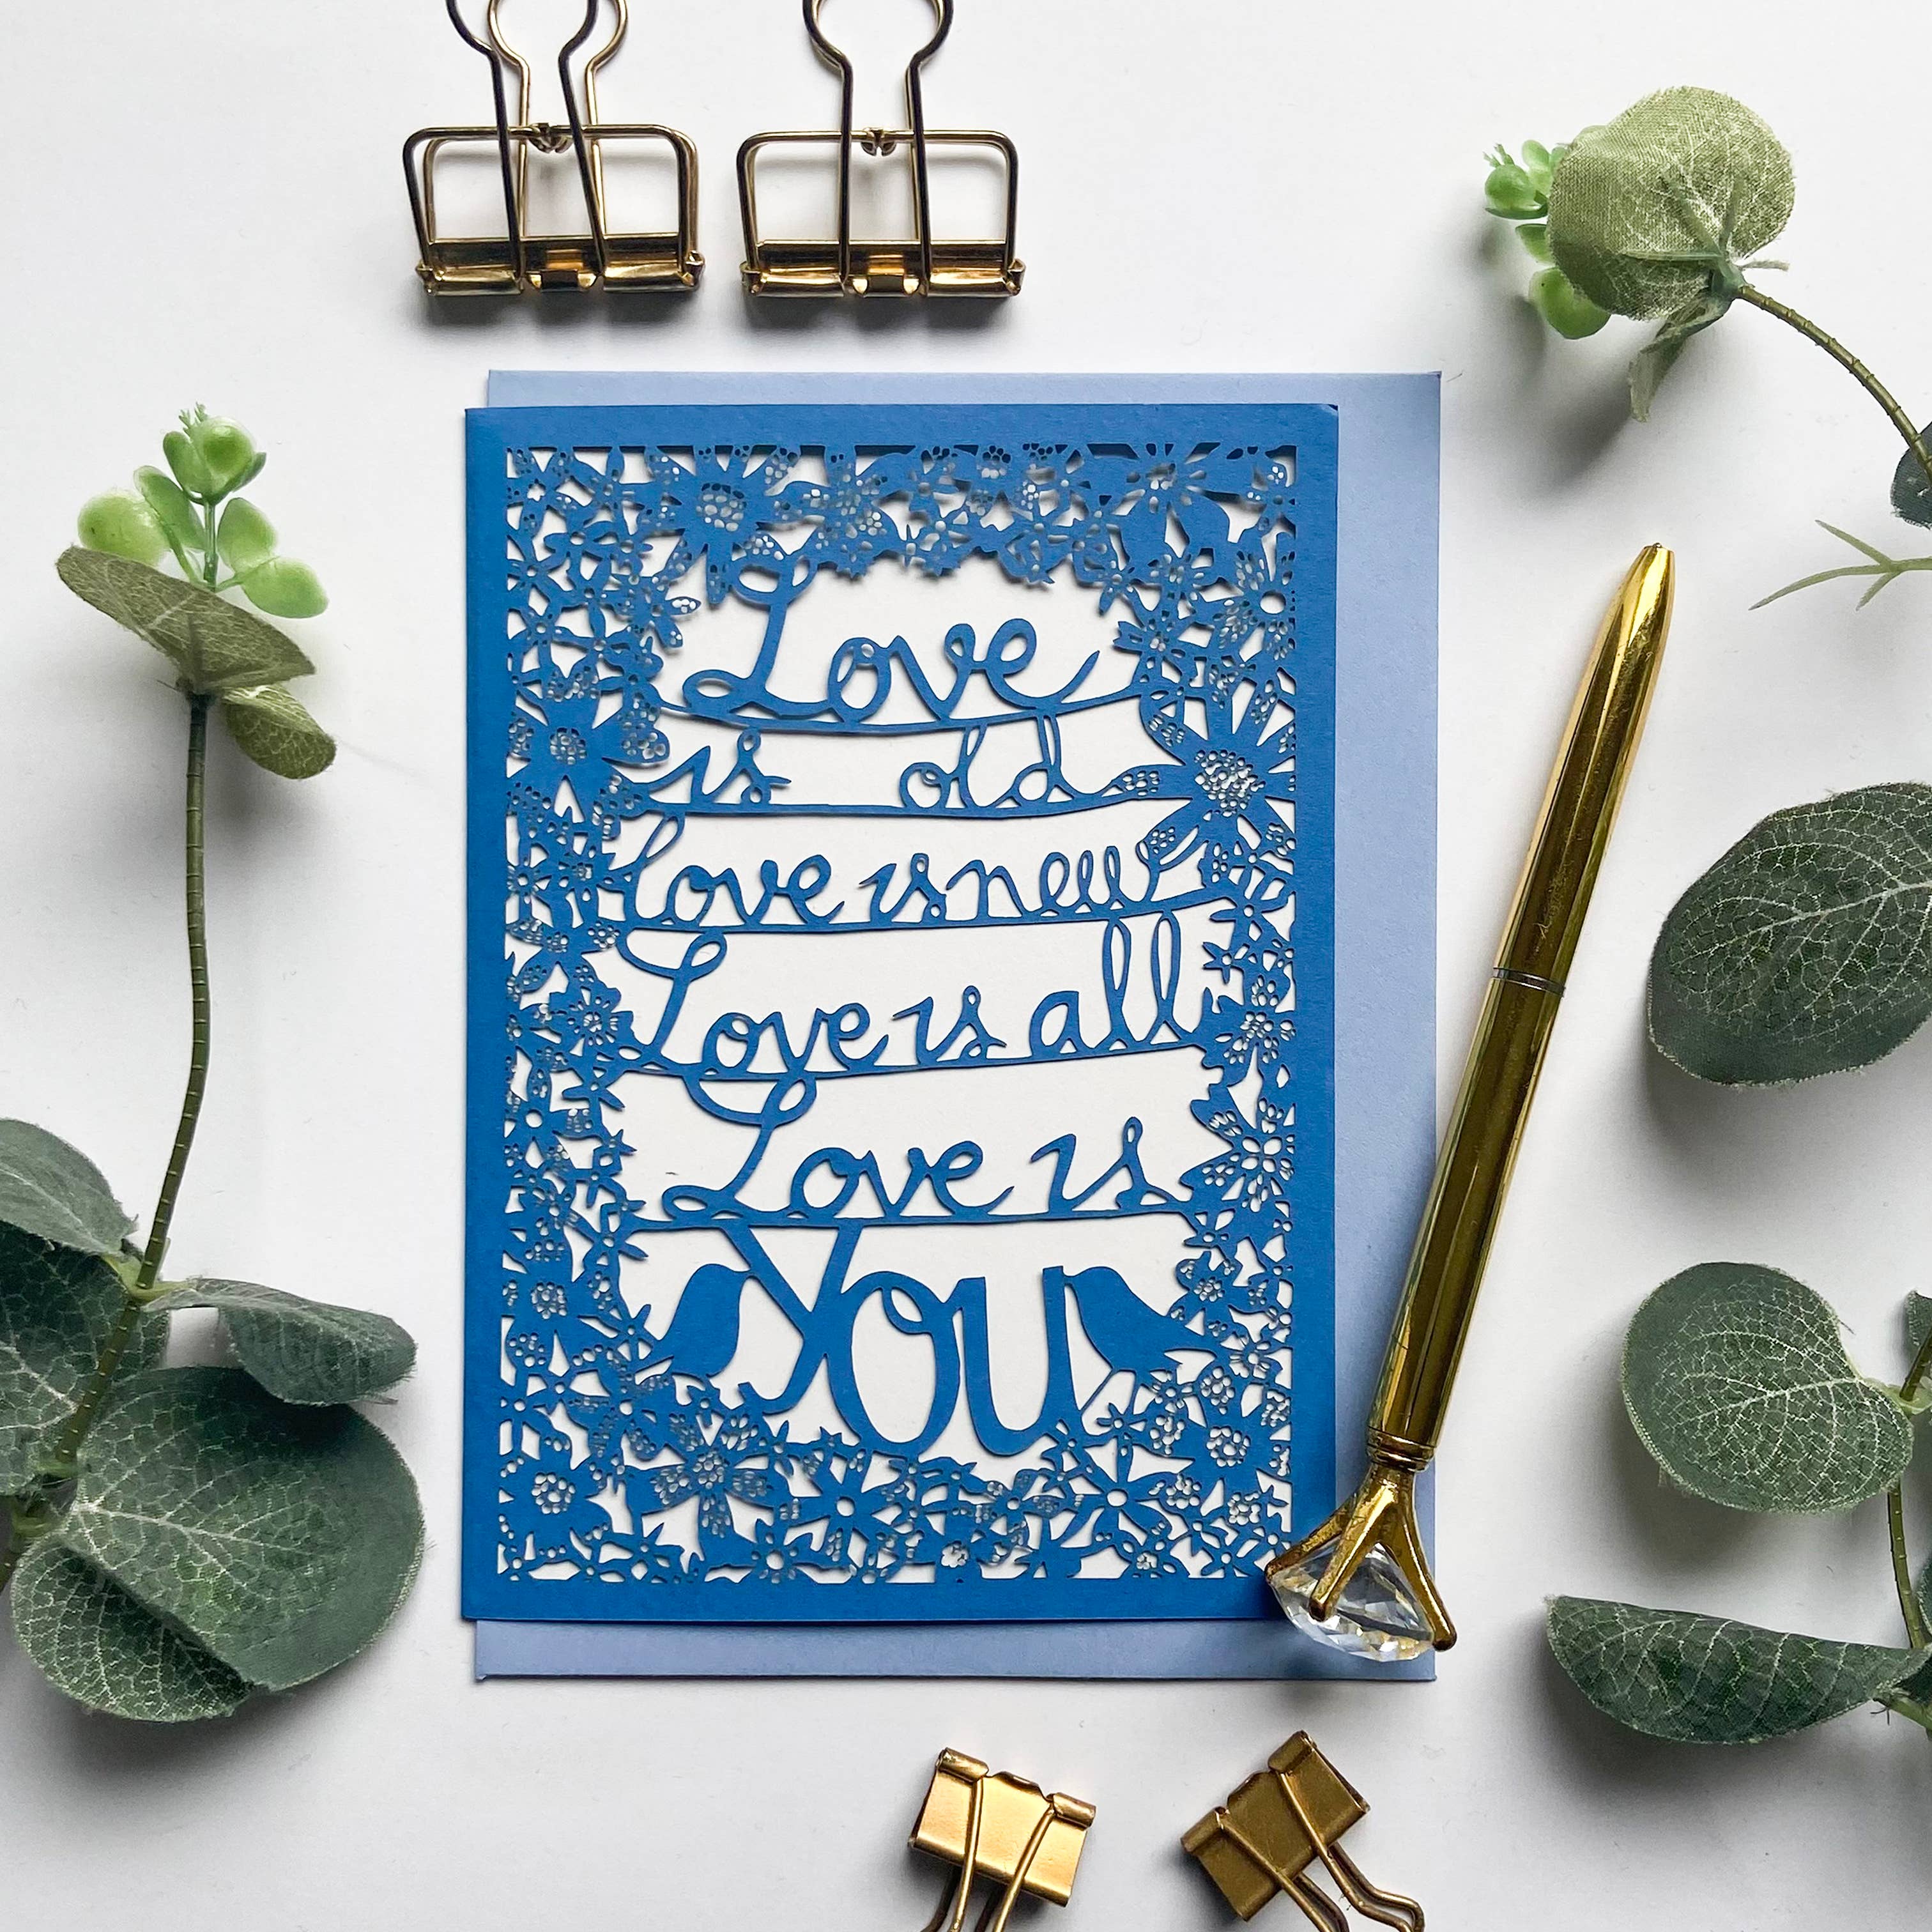 Love
is old
love is new
Love is all
Love is
You